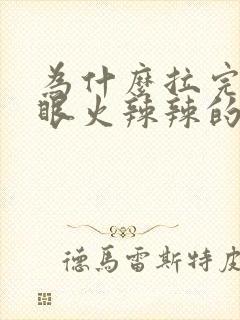 為什麼拉完
眼火辣辣的
德馬雷斯特皮